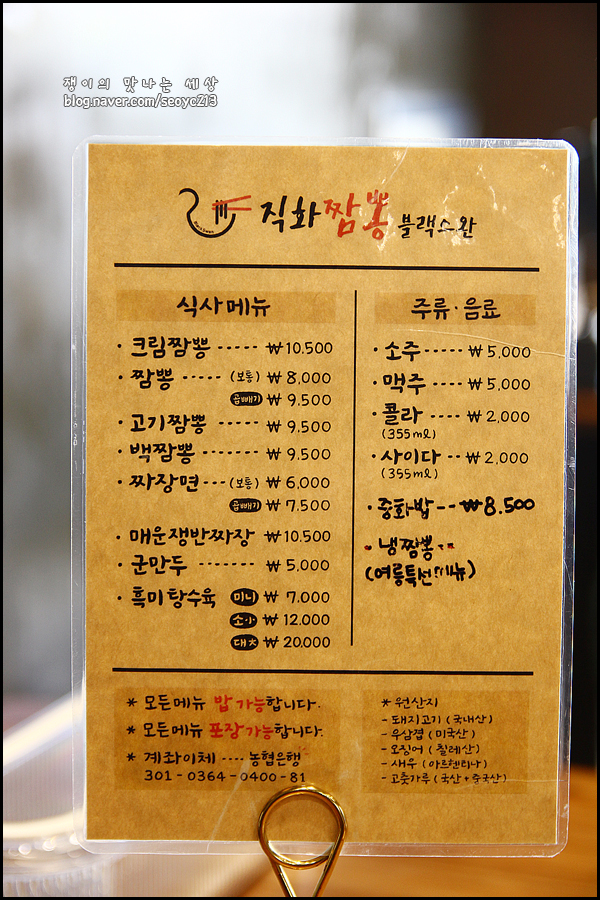 쟁이의 맛나는 세상
blog.naver.com/seoyc213
직화짬뽕 블랙스완
식사메뉴
· 크림짬뽕 ----- ₩10.500
· 짬뽕 ----- (보통) ₩ 8,000
곱빼기 ₩ 9.500
· 고기짬뽕 ----- ₩ 9.500
· 백짬뽕 ------- ₩ 9.500
· 짜장면 --- (보통) ₩ 6,000
곱빼기 ₩ 7.500
· 매운쟁반짜장 ₩10.500
· 군만두 ------- ₩ 5,000
· 흑미탕수육 미니 ₩ 7.000
소 ₩ 12.000
대 ₩ 20.000
주류 · 음료
· 소주 ----- ₩ 5,000
· 맥주 ----- ₩ 5,000
· 콜라 ---- ₩ 2,000
(355ml)
· 사이다 -- ₩ 2,000
(355ml)
· 중화밥 -- ₩8.500
· 냉짬뽕 --
(여름특선메뉴)
* 모든메뉴 밥 가능합니다.
* 모든메뉴 포장가능합니다.
* 계좌이체 ---- 농협은행
301 - 0364 - 0400 - 81
* 원산지
- 돼지고기 ( 국내산 )
- 우삼겹 ( 미국산 )
- 오징어 ( 칠레산 )
- 새우 ( 아르헨티나 )
- 고춧가루 ( 국산 + 중국산 )